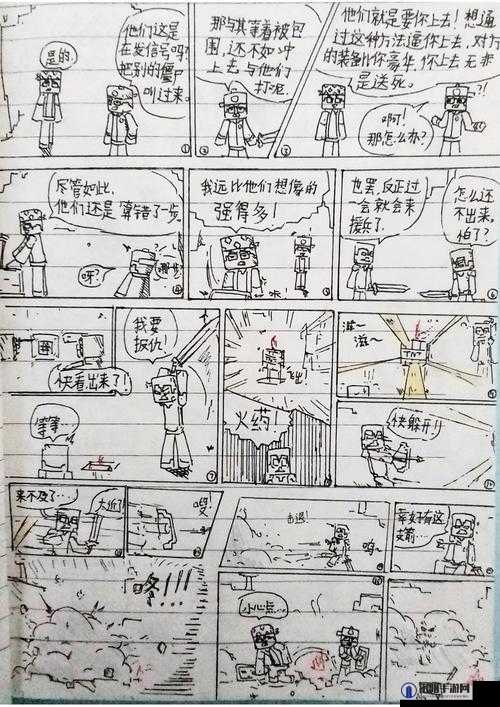 是的.
他们这是
在发信号吗?
把别的僵尸
叫过来。
①
那与其等着被包
围,还不如冲
上去与他们
打呢
②
他们就是要你上去!想通
过这种方法逼你上去,对方
的装备比你豪华,你上去无非
是送死。
?!
啊!
那怎么办?
③
尽管如此,
他们还是算错了一步
呀?
④
我远比他们想像的
强得多!
⑤
也罢,反正过
一会就会来
援兵了.
怎么还
不出来,
怕了?
⑥
快看出来了!
等等…
我要
报仇!
⑦
火药!
⑧
滋~
滋~
TNT
⑨
快躲开!!
⑩
来不及了…
太近了
嗖!
击退!
呜~
幸好有这
支箭…
咚!!!
小心点…